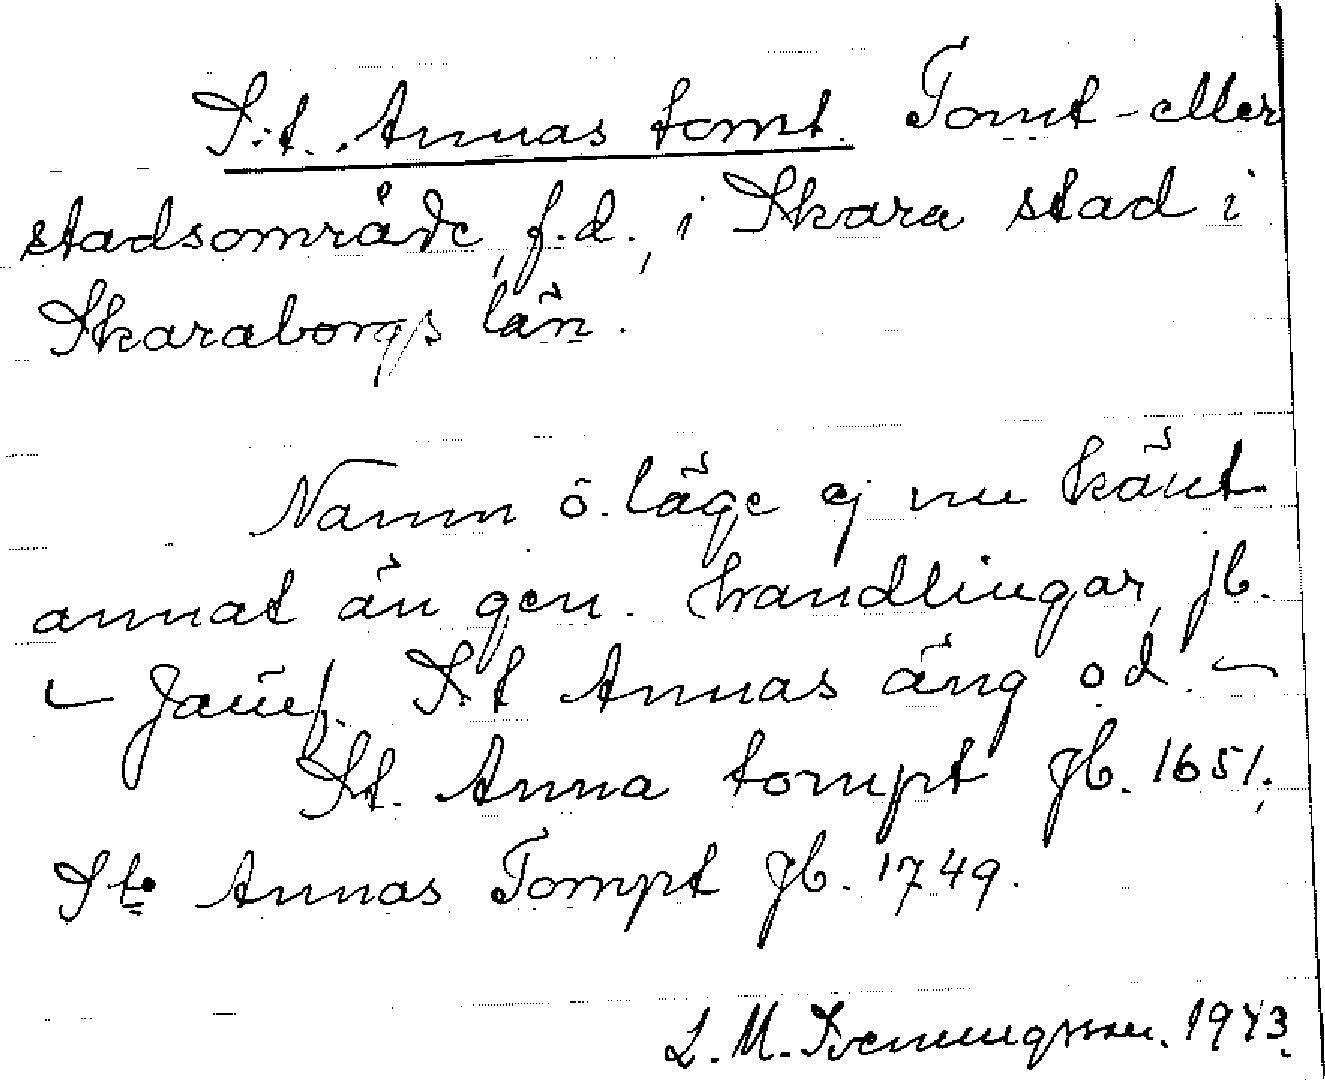 S:t. Annas tomt. Tomt- eller
stadsområde, f.d., i Skara stad i
Skaraborgs län.
Namn o. läge ej nu känt
annat än gen. handlingar, jb.
– Jämf. S:t Annas äng o.d. –
St. Anna tompt jb. 1651;
Ste Annas Tompt jb. 1749.
L. M. Svenungsson. 1943.